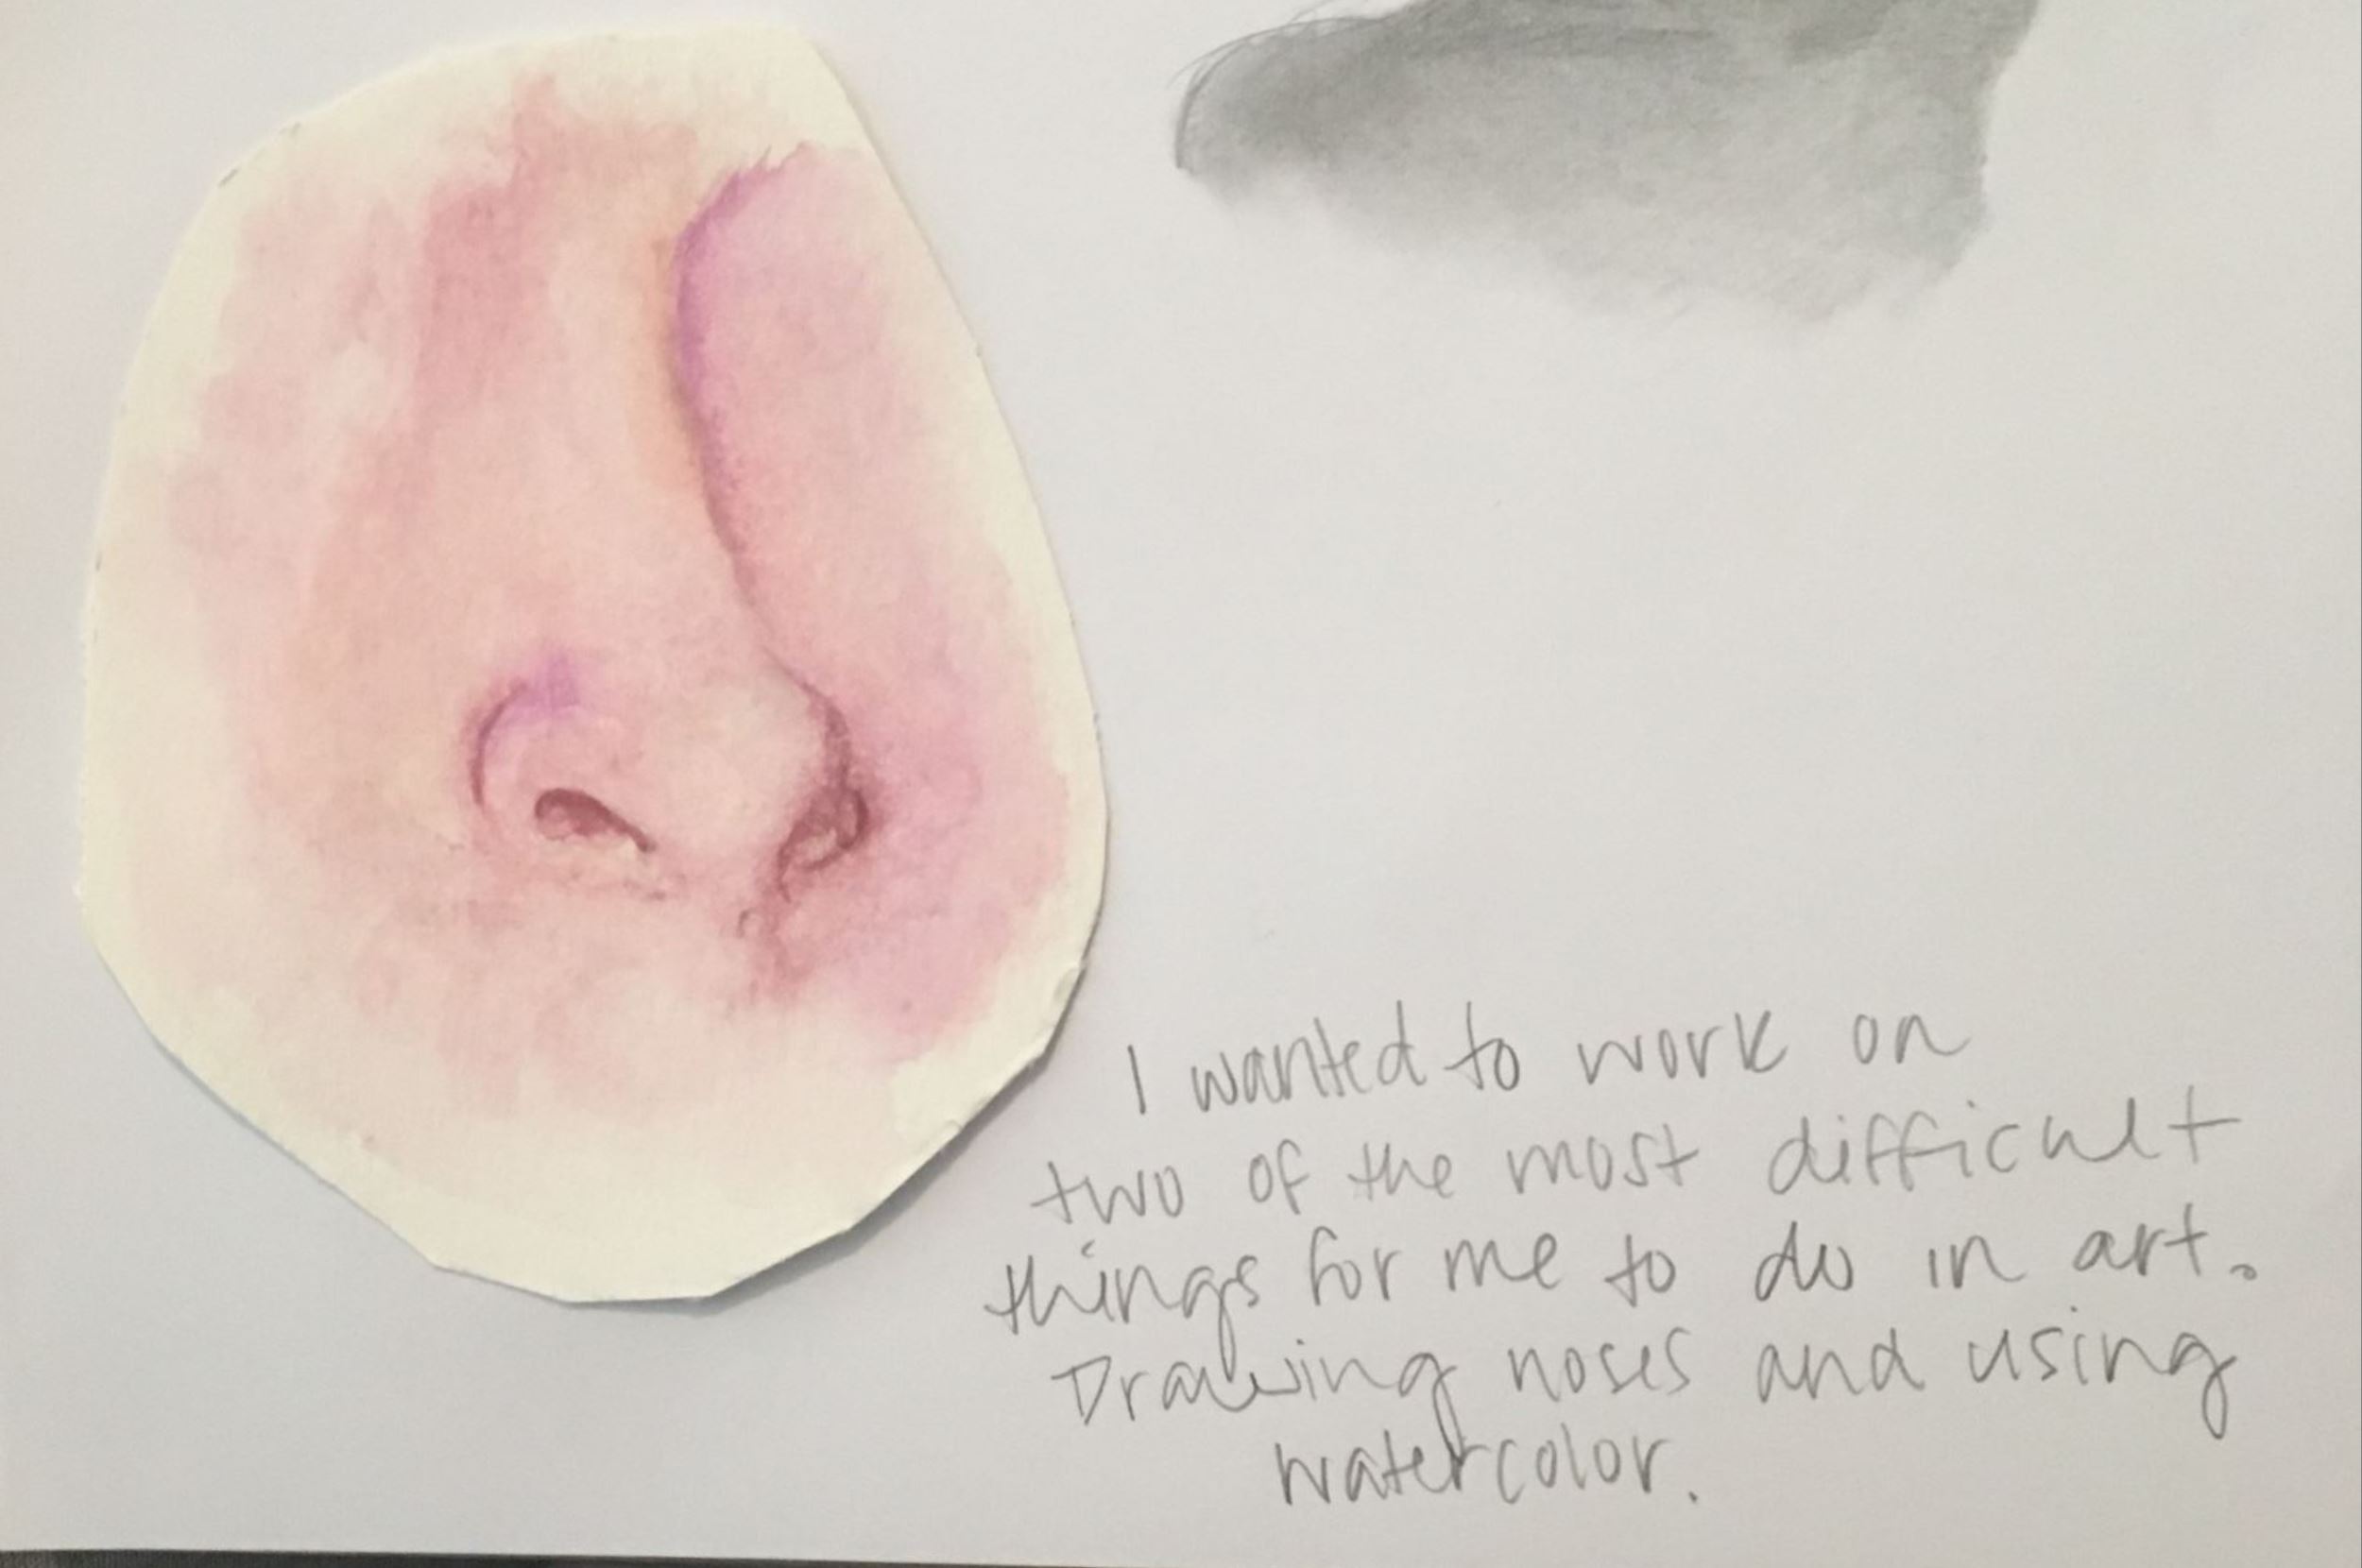 I wanted to work on
two of the most difficult
things for me to do in art.
Drawing noses and using
watercolor.